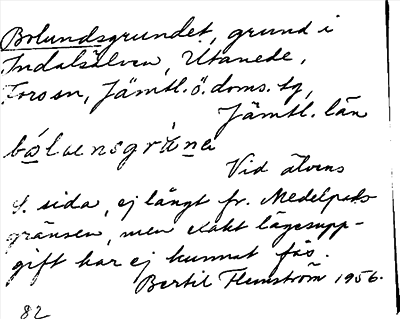 Bolundsgrundet, grund i
Indalsälven, Utanede,
Forsen, Jämtl. ö. doms. sg,
Jämtl. län
Vid älvens
S. sida, ej långt fr. Medelpads-
gränsen, men exakt lägesupp-
gift har ej kunnat fås.
Bertil Flemström 1956.
82